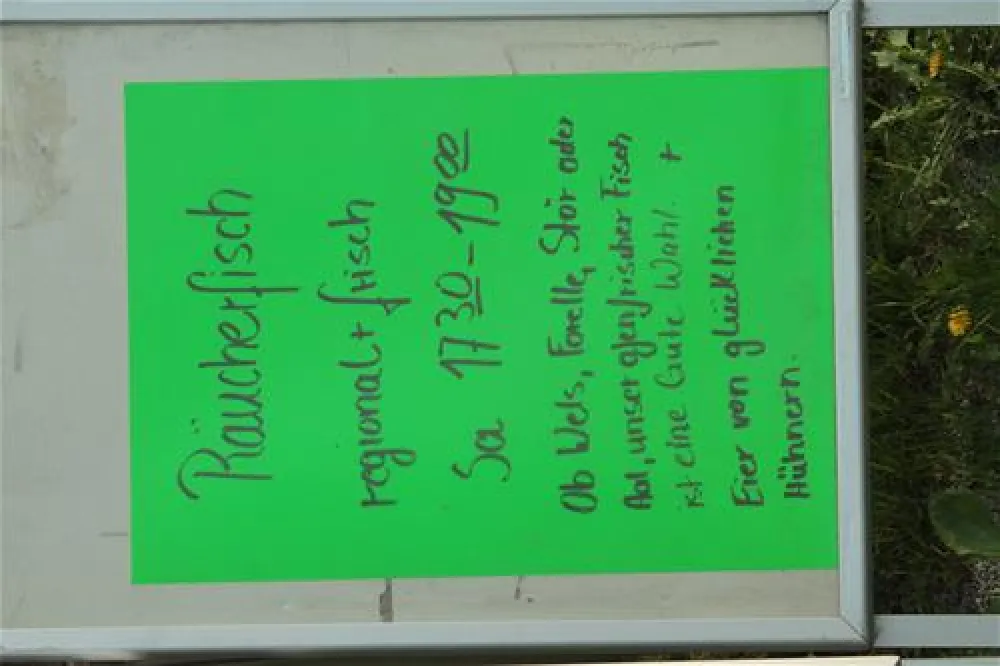 Räucherfisch
regional + frisch
Sa 17 30 - 19 00
Ob Wels, Forelle, Stör oder
Aal, unser ofenfrischer Fisch
ist eine Gute Wahl. +
Eier von glücklichen
Hühnern.